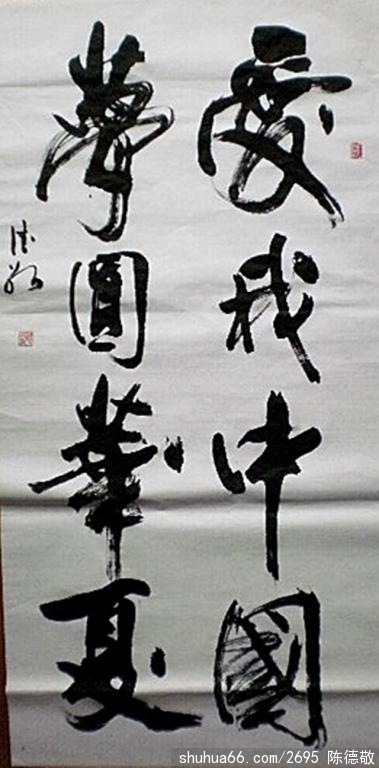 愛我中國
夢圓華夏
德敬
shuhua66.com/2695 陈德敬